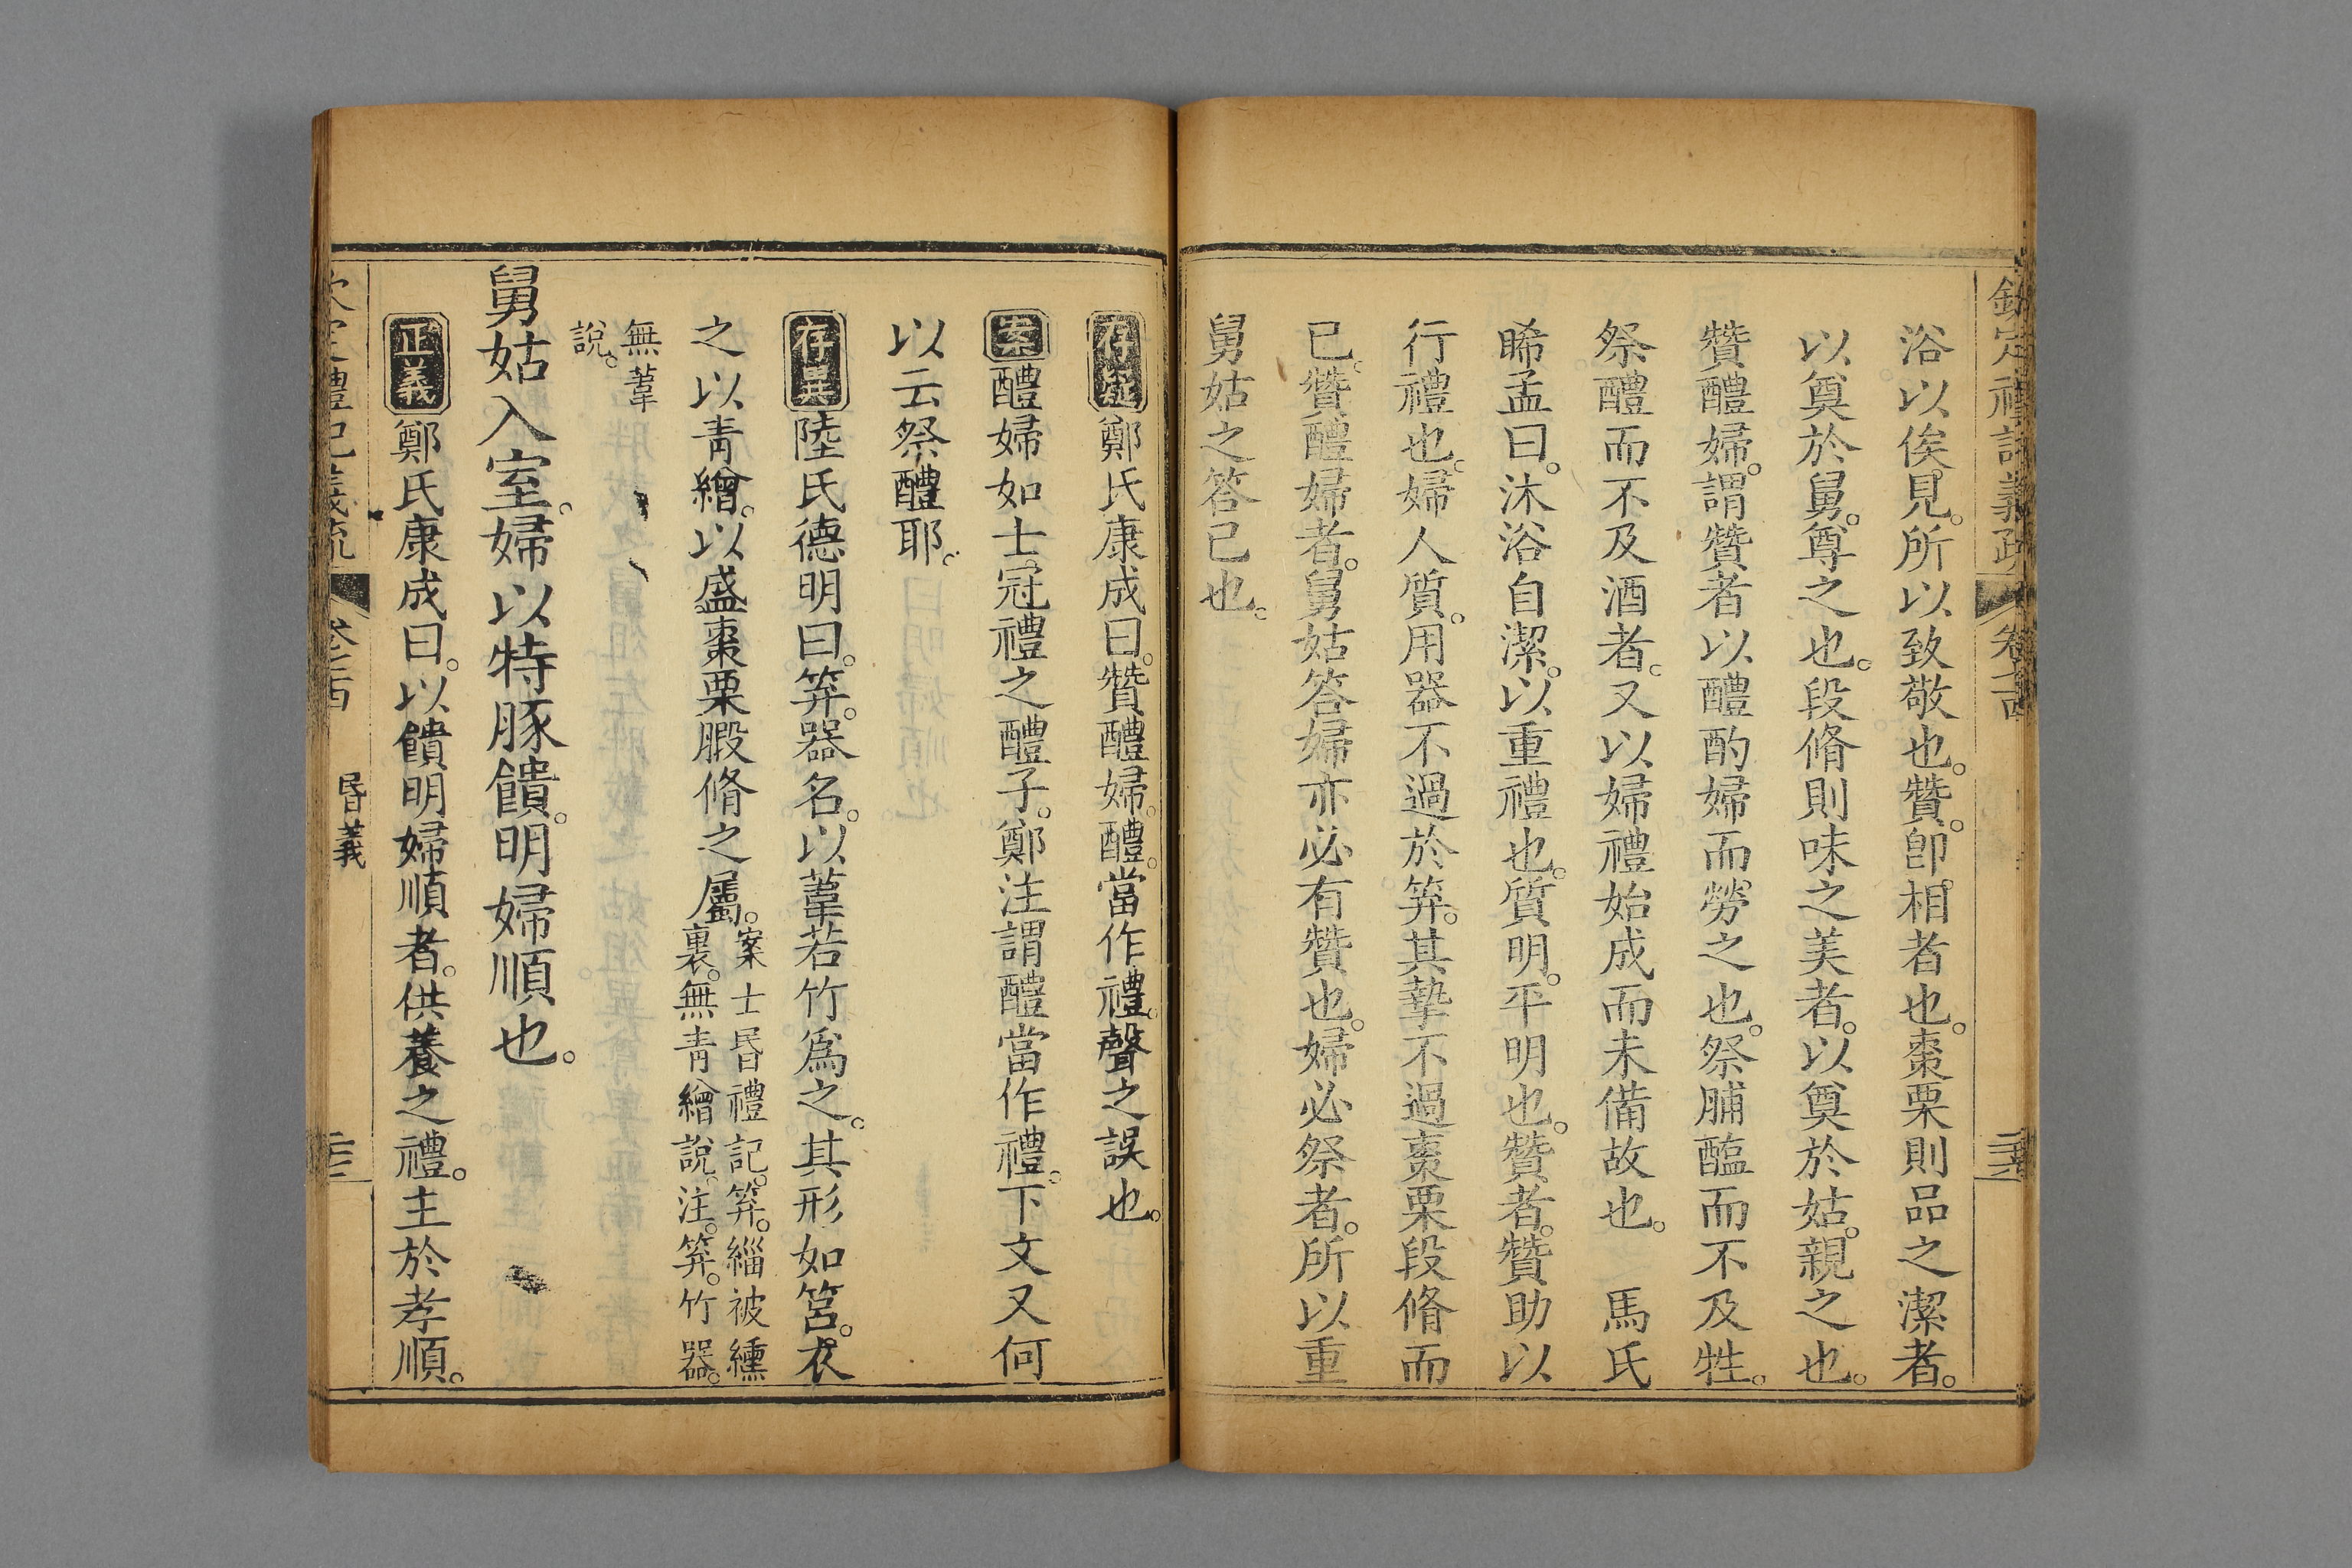 欽定禮記義疏 卷七十四
浴以俟見。所以致敬也。贊。卽相者也。棗栗則品之潔者。
以奠於舅。尊之也。段脩則味之美者。以奠於姑。親之也。
贊醴婦。謂贊者以醴酌婦而勞之也。祭脯醢而不及牲。
祭醴而不及酒者。又以婦禮始成而未備故也。 馬氏
睎孟曰。沐浴自潔。以重禮也。質明。平明也。贊者。贊助以
行禮也。婦人質。用器不過於笲。其摯不過棗栗段脩而
已。贊醴婦者。舅姑答婦亦必有贊也。婦必祭者。所以重
舅姑之答己也。
存疑鄭氏康成曰。贊醴婦。醴。當作禮。聲之誤也。
案醴婦如士冠禮之醴子。鄭注謂醴當作禮。下文又何
以云祭醴耶。
存異陸氏德明曰。笲。器名。以葦若竹爲之。其形如筥。衣
之以靑繒。以盛棗栗腶脩之屬。案士昏禮記。笲。緇被纁
裏。無靑繒說。注。笲。竹器。
無葦
說。
舅姑入室。婦以特豚饋。明婦順也。
正義鄭氏康成曰。以饋明婦順者。供養之禮。主於孝順。
昏義